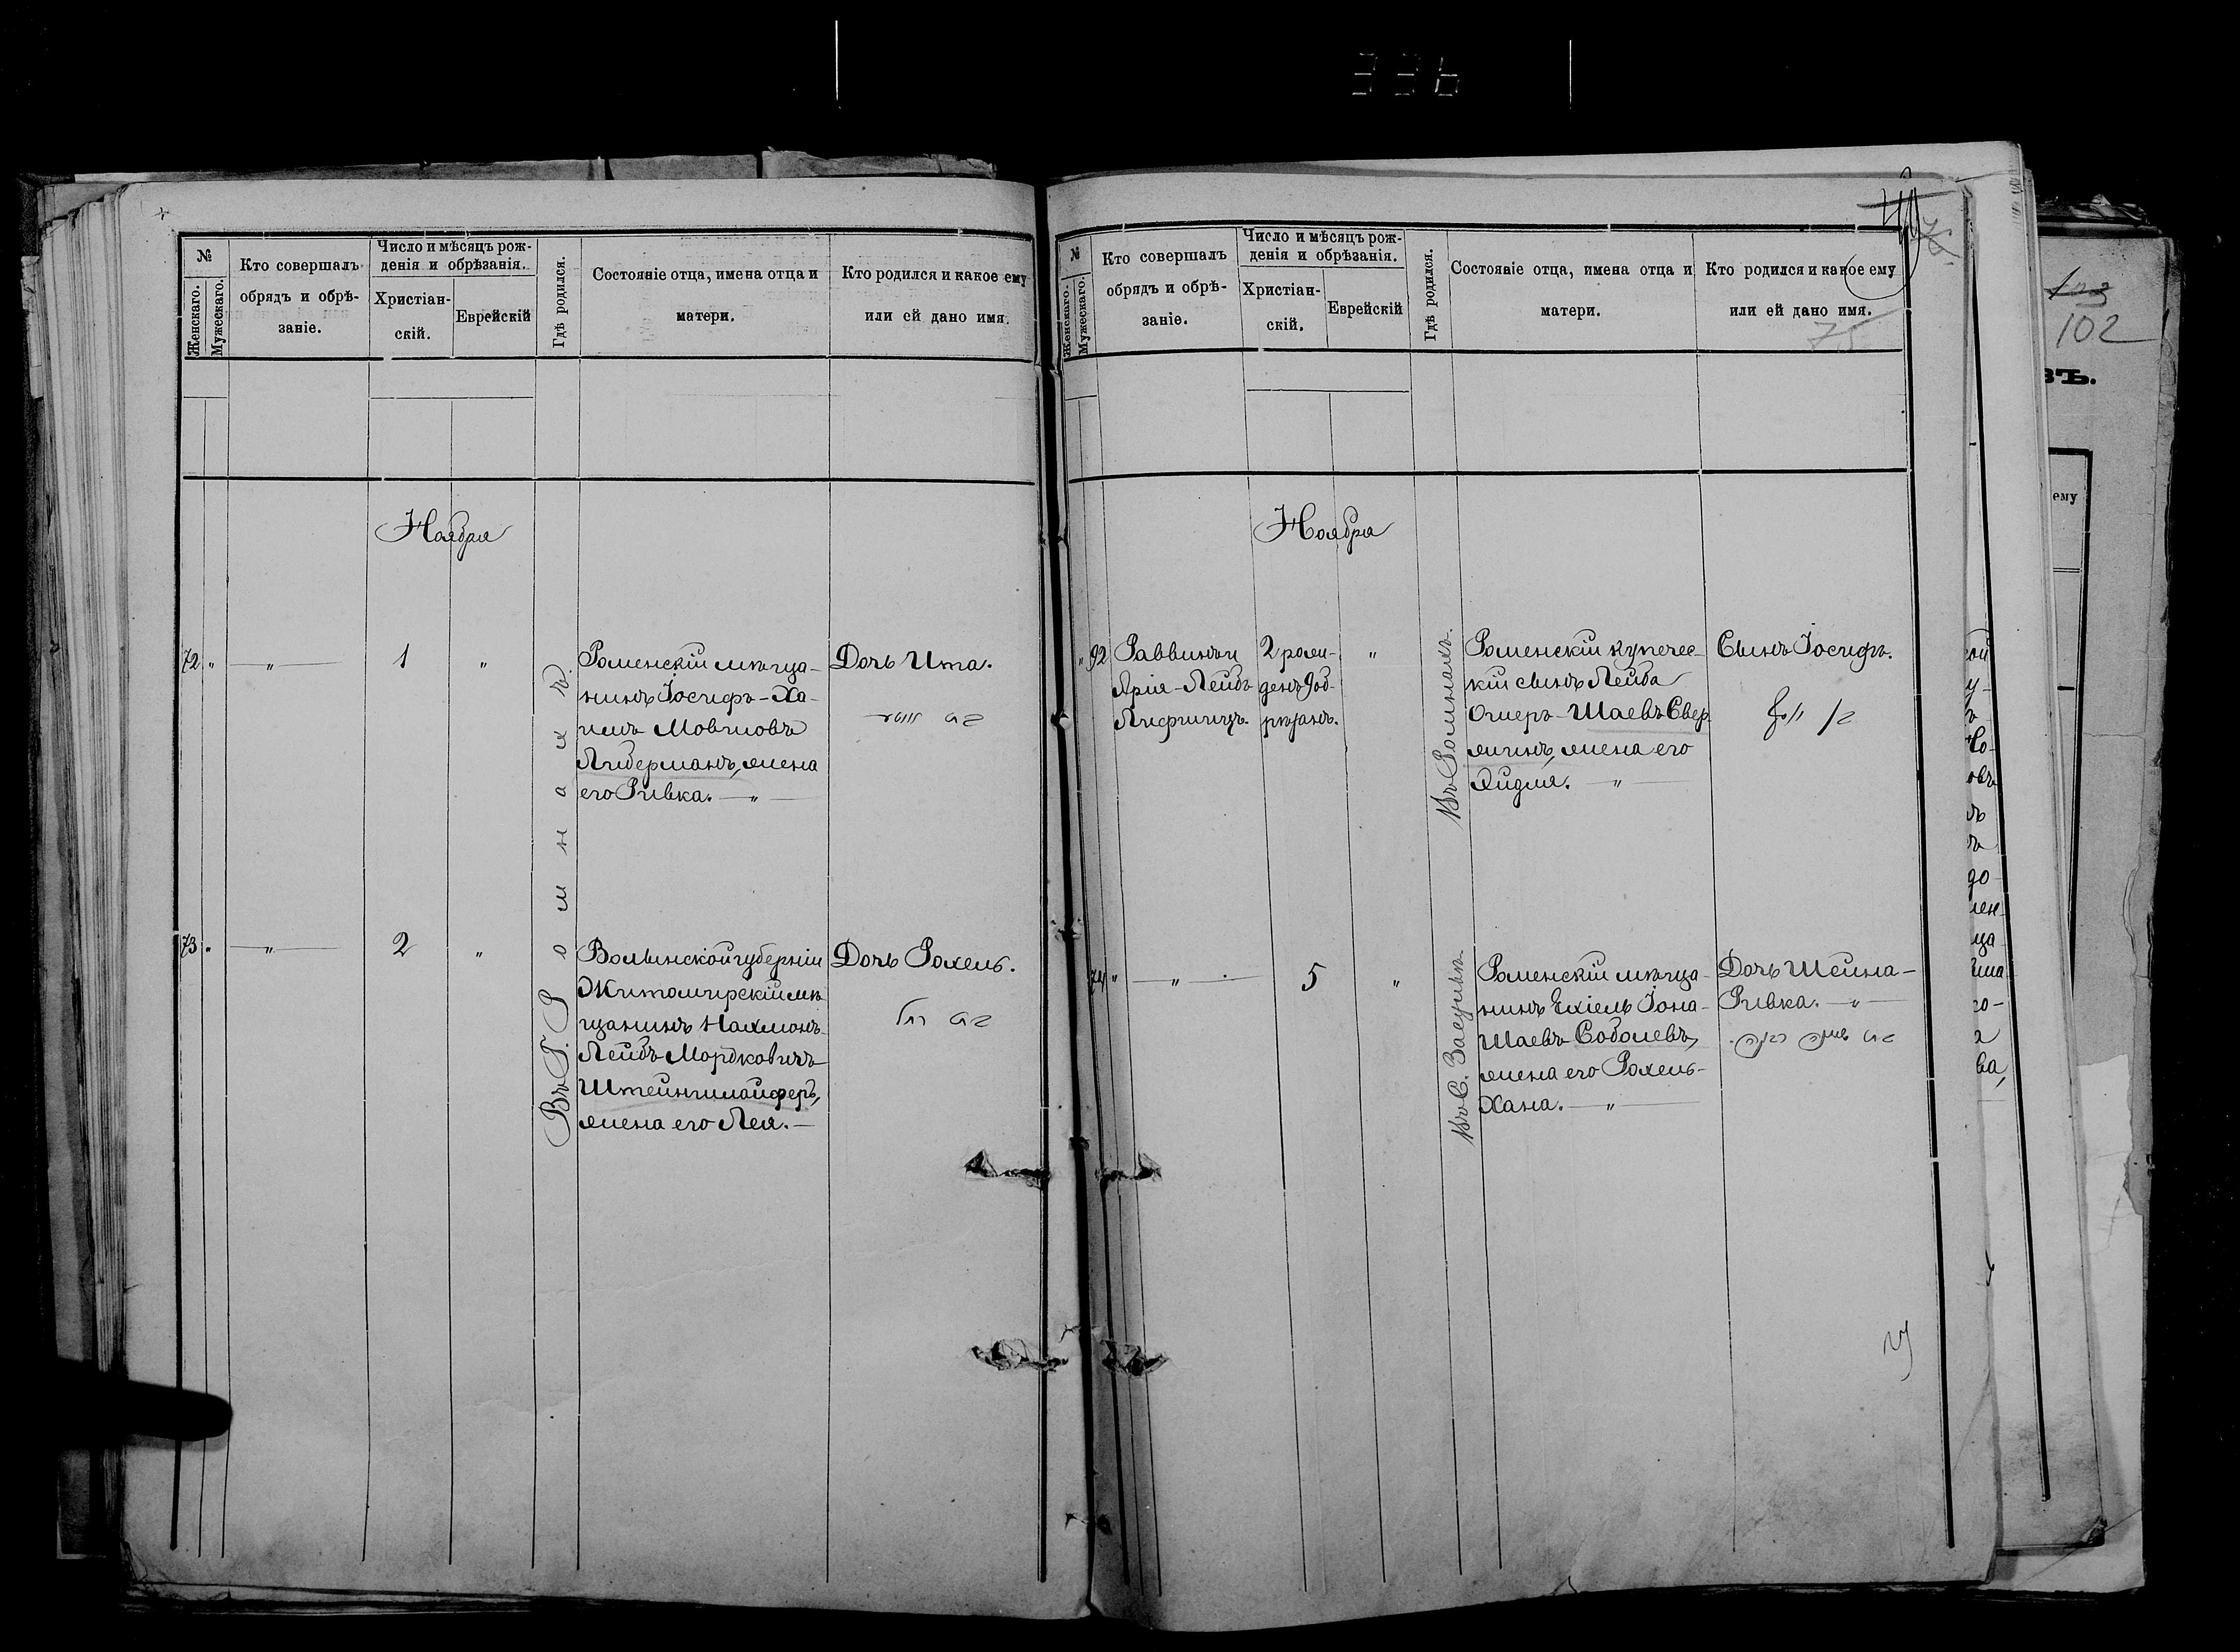 336
№
Женскаго.
Мужескаго.
Кто совершалъ
обрядъ и обрѣ-
заніе.
Число и мѣсяцъ рож-
денія и обрѣзанія.
Христіан-
скій.
Еврейскій
Гдѣ родился.
Состояніе отца, имена отца и
матери.
Кто родился и какое ему
или ей дано имя.
Ноября
72 " " 1 "
Въ Г. Роминахъ.
Роменскій мѣща-
нинъ Іосифъ-Ха-
имъ Мовшовъ
Либерманъ, жена
его Ривка. — " —
Дочь Ита.
73 " " 2 "
Волынской губерніи
Житомирскій мѣ-
щанинъ Нахманъ-
Лейбъ Мордковичъ
Штейншлайферъ,
жена его Лея. —
Дочь Рохель.
בת רחל
№
Женскаго.
Мужескаго.
Кто совершалъ
обрядъ и обрѣ-
заніе.
Число и мѣсяцъ рож-
денія и обрѣзанія.
Христіан-
скій.
Еврейскій
Гдѣ родился.
Состояніе отца, имена отца и
матери.
Кто родился и какое ему
или ей дано имя.
75
102
ему
Ноября
" 92
Раввинъ и
Арія-Лейбъ
Лифшицъ.
2 рож-
денъ 9 об-
рѣзанъ.
"
Въ Роминахъ.
Роменскій купечес-
кій сынъ Лейба
Ошеръ-Шаевъ Свер
жена его
Сынъ Іосифъ.
בן יוסף
74 " " 5 "
Въ С. Засульѣ.
Роменскій мѣща-
нинъ Ехіель Іона-
Шаевъ Соболевъ,
жена его Рохель-
Хана. — " —
Дочь Шейна-
Ривка. — " —
בת שיינה רבקה.